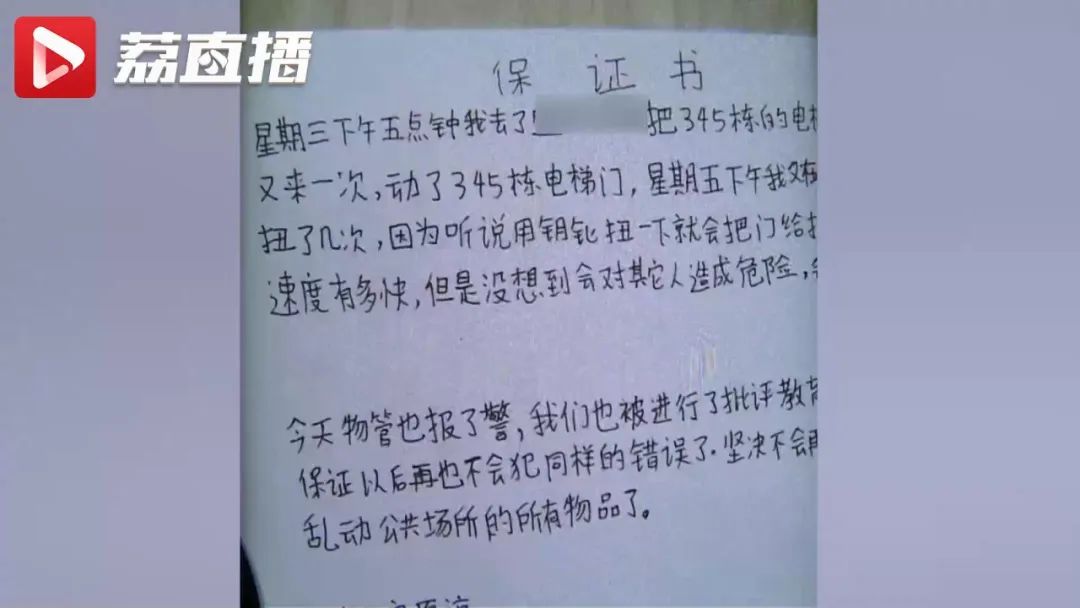 荔直播
保证书
星期三下午五点钟我去了 把345栋的电梯
又来一次,动了345栋电梯门,星期五下午我又在
扭了几次,因为听说用钥匙扭一下就会把门给打
速度有多快,但是没想到会对其它人造成危险,
今天物管也报了警,我们也被进行了批评教育
保证以后再也不会犯同样的错误了.坚决不会再
乱动公共场所的所有物品了。